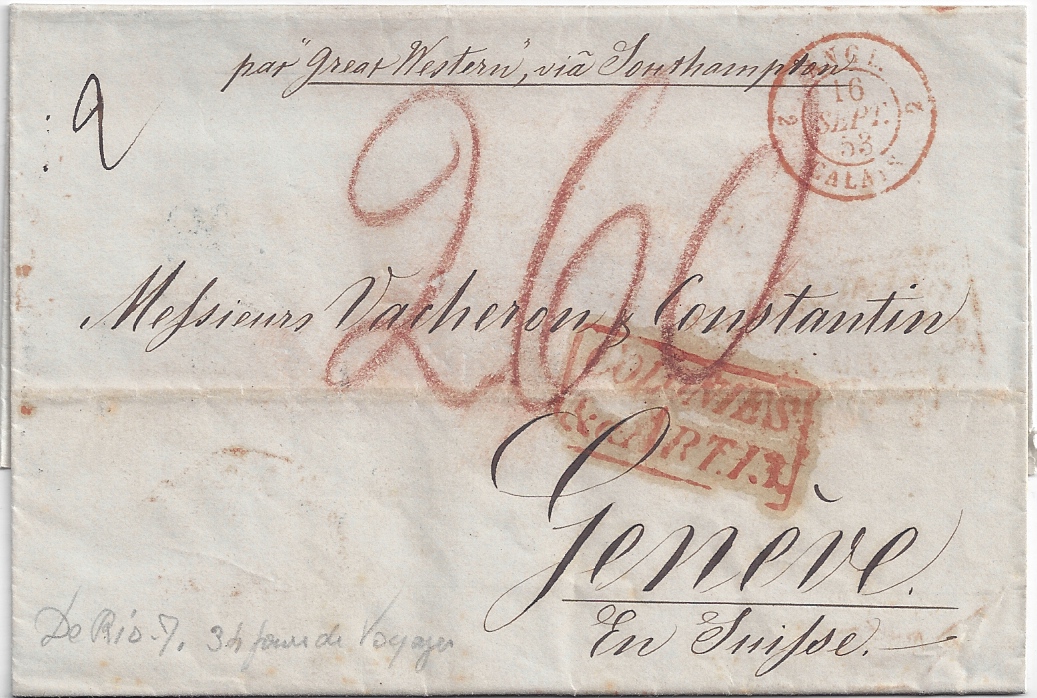 par "Great Western", viâ Southampton
2
ANGL.
2 16 2
SEPT.
53
CALAIS
260
Meſsieurs Vacheron & Constantin
COLONIES
&c. ART. 13
Genève.
En Suiſse.
De Rio. 34 jours de Voyages